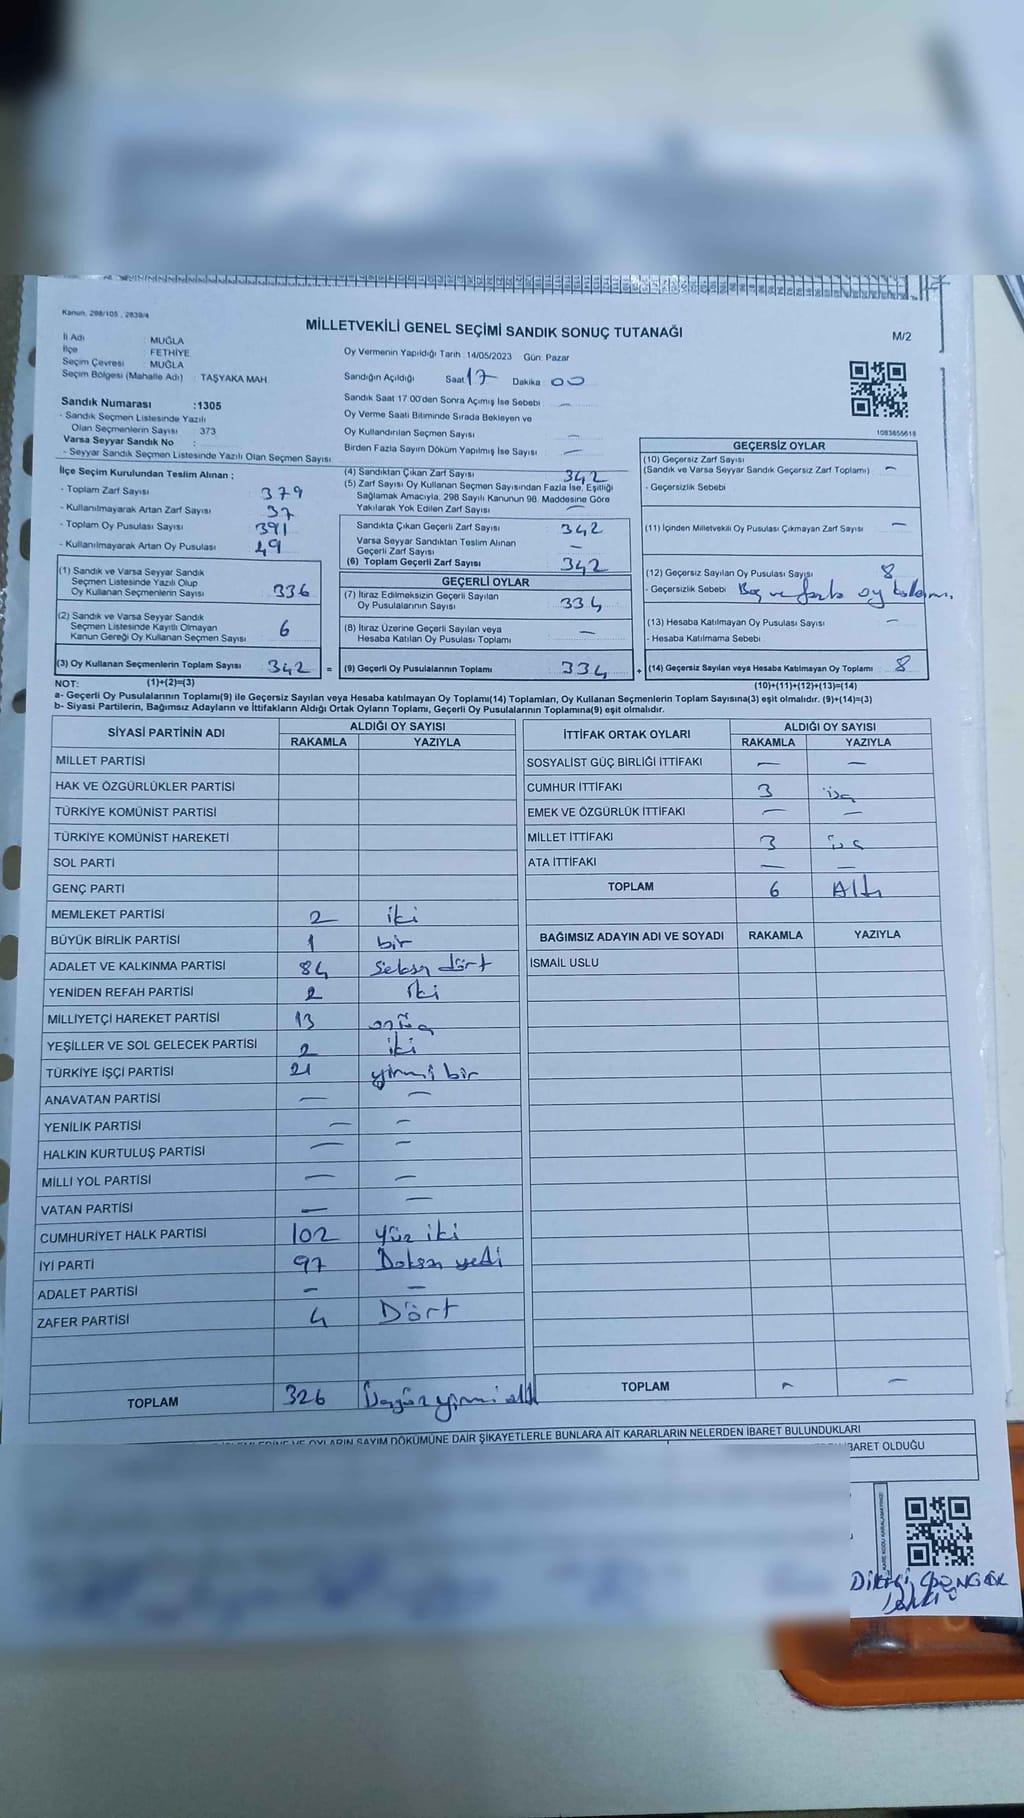 Kanun, 298/105 , 2839/4
MİLLETVEKİLİ GENEL SEÇİMİ SANDIK SONUÇ TUTANAĞI
M/2
İl Adı : MUĞLA
İlçe : FETHİYE
Seçim Çevresi : MUĞLA
Seçim Bölgesi (Mahalle Adı) : TAŞYAKA MAH.
Oy Vermenin Yapıldığı Tarih : 14/05/2023 Gün: Pazar
Sandığın Açıldığı Saat 17 Dakika : 00
Sandık Saat 17:00'den Sonra Açımış İse Sebebi : —
Oy Verme Saati Bitiminde Sırada Bekleyen ve
Oy Kullandırılan Seçmen Sayısı : —
Birden Fazla Sayım Döküm Yapılmış İse Sayısı : —
1083655618
Sandık Numarası :1305
- Sandık Seçmen Listesinde Yazılı
Olan Seçmenlerin Sayısı : 373
Varsa Seyyar Sandık No :
- Seyyar Sandık Seçmen Listesinde Yazılı Olan Seçmen Sayısı:
İlçe Seçim Kurulundan Teslim Alınan ;
- Toplam Zarf Sayısı 379
- Kullanılmayarak Artan Zarf Sayısı 37
- Toplam Oy Pusulası Sayısı 391
- Kullanılmayarak Artan Oy Pusulası 49
(1) Sandık ve Varsa Seyyar Sandık
Seçmen Listesinde Yazılı Olup
Oy Kullanan Seçmenlerin Sayısı 336
(2) Sandık ve Varsa Seyyar Sandık
Seçmen Listesinde Kayıtlı Olmayan
Kanun Gereği Oy Kullanan Seçmen Sayısı 6
(3) Oy Kullanan Seçmenlerin Toplam Sayısı 342 =
(1)+(2)=(3)
(4) Sandıktan Çıkan Zarf Sayısı 342
(5) Zarf Sayısı Oy Kullanan Seçmen Sayısından Fazla İse, Eşitliği
Sağlamak Amacıyla, 298 Sayılı Kanunun 98. Maddesine Göre
Yakılarak Yok Edilen Zarf Sayısı —
Sandıkta Çıkan Geçerli Zarf Sayısı 342
Varsa Seyyar Sandıktan Teslim Alınan
Geçerli Zarf Sayısı —
(6) Toplam Geçerli Zarf Sayısı 342
GEÇERLİ OYLAR
(7) İtiraz Edilmeksizin Geçerli Sayılan
Oy Pusulalarının Sayısı 334
(8) İtiraz Üzerine Geçerli Sayılan veya
Hesaba Katılan Oy Pusulası Toplamı —
(9) Geçerli Oy Pusulalarının Toplamı 334 +
GEÇERSİZ OYLAR
(10) Geçersiz Zarf Sayısı
(Sandık ve Varsa Seyyar Sandık Geçersiz Zarf Toplamı) —
- Geçersizlik Sebebi
(11) İçinden Milletvekili Oy Pusulası Çıkmayan Zarf Sayısı —
(12) Geçersiz Sayılan Oy Pusulası Sayısı 8
- Geçersizlik Sebebi Boş ve fazla oy
(13) Hesaba Katılmayan Oy Pusulası Sayısı —
- Hesaba Katılmama Sebebi
(14) Geçersiz Sayılan veya Hesaba Katılmayan Oy Toplamı 8
(10)+(11)+(12)+(13)=(14)
NOT:
a- Geçerli Oy Pusulalarının Toplamı(9) ile Geçersiz Sayılan veya Hesaba katılmayan Oy Toplamı(14) Toplamları, Oy Kullanan Seçmenlerin Toplam Sayısına(3) eşit olmalıdır. (9)+(14)=(3)
b- Siyasi Partilerin, Bağımsız Adayların ve İttifakların Aldığı Ortak Oyların Toplamı, Geçerli Oy Pusulalarının Toplamına(9) eşit olmalıdır.
SİYASİ PARTİNİN ADI ALDIĞI OY SAYISI
RAKAMLA YAZIYLA
MİLLET PARTİSİ
HAK VE ÖZGÜRLÜKLER PARTİSİ
TÜRKİYE KOMÜNİST PARTİSİ
TÜRKİYE KOMÜNİST HAREKETİ
SOL PARTİ
GENÇ PARTİ
MEMLEKET PARTİSİ 2 iki
BÜYÜK BİRLİK PARTİSİ 1 bir
ADALET VE KALKINMA PARTİSİ 84 Seksen dört
YENİDEN REFAH PARTİSİ 2 iki
MİLLİYETÇİ HAREKET PARTİSİ 13 onüç
YEŞİLLER VE SOL GELECEK PARTİSİ 2 iki
TÜRKİYE İŞÇİ PARTİSİ 21 yirmi bir
ANAVATAN PARTİSİ — —
YENİLİK PARTİSİ — —
HALKIN KURTULUŞ PARTİSİ — —
MİLLİ YOL PARTİSİ — —
VATAN PARTİSİ — —
CUMHURİYET HALK PARTİSİ 102 yüz iki
İYİ PARTİ 97 Doksan yedi
ADALET PARTİSİ — —
ZAFER PARTİSİ 4 Dört
TOPLAM 326 Üçyüz yirmi altı
İTTİFAK ORTAK OYLARI ALDIĞI OY SAYISI
RAKAMLA YAZIYLA
SOSYALİST GÜÇ BİRLİĞİ İTTİFAKI — —
CUMHUR İTTİFAKI 3 üç
EMEK VE ÖZGÜRLÜK İTTİFAKI — —
MİLLET İTTİFAKI 3 üç
ATA İTTİFAKI — —
TOPLAM 6 Altı
BAĞIMSIZ ADAYIN ADI VE SOYADI RAKAMLA YAZIYLA
İSMAİL USLU
TOPLAM — —
VE OYLARIN SAYIM DÖKÜMÜNE DAİR ŞİKAYETLERLE BUNLARA AİT KARARLARIN NELERDEN İBARET BULUNDUKLARI
OLDUĞU